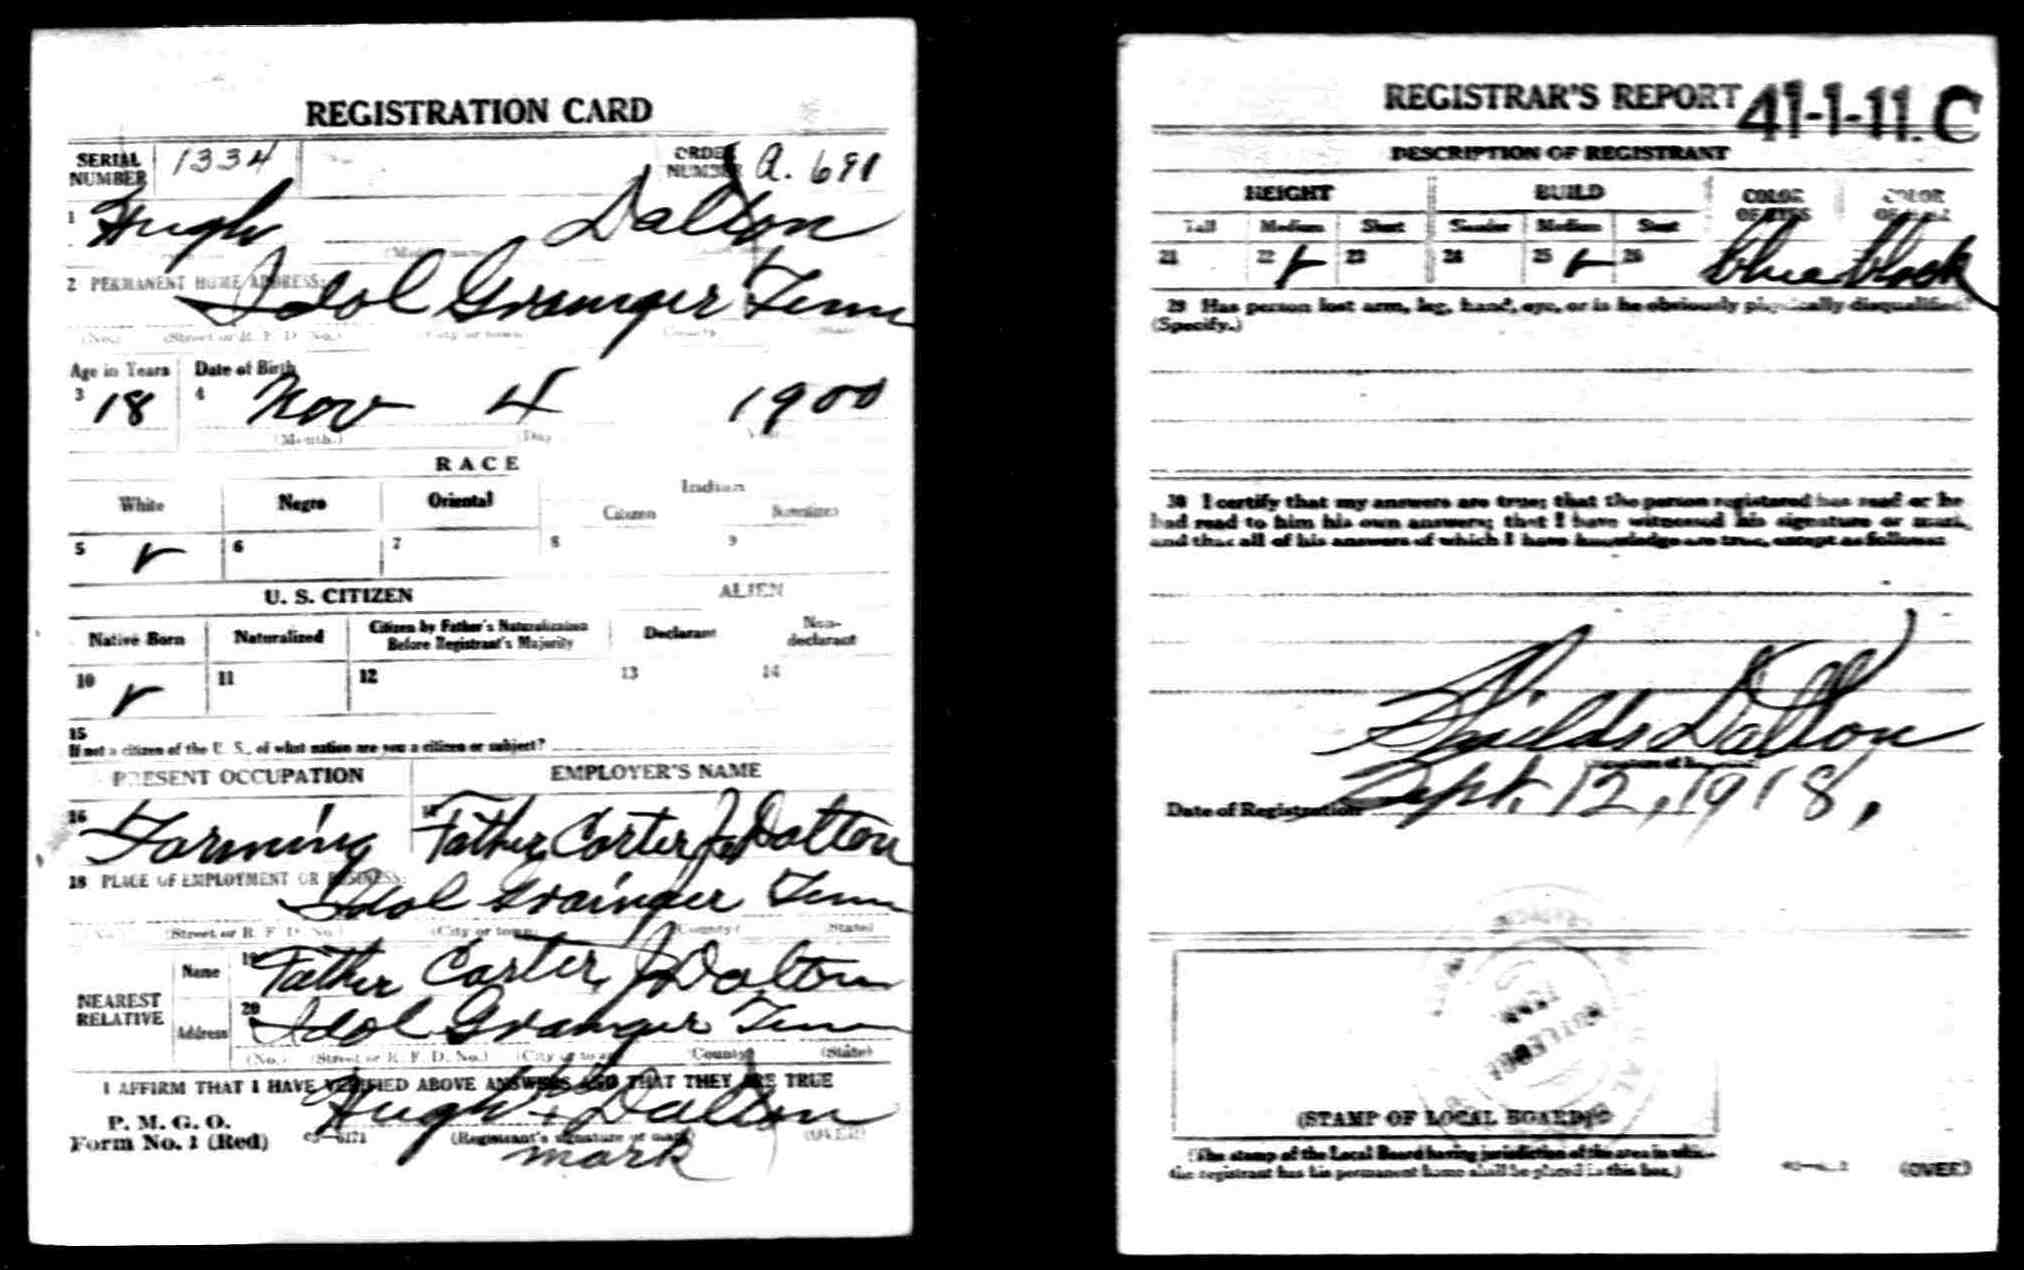 REGISTRATION CARD
SERIAL NUMBER 1334 ORDER NUMBER A. 691
1 Hugh Dalton
2 PERMANENT HOME ADDRESS: Idol Granger Tenn
(No.) (Street or R. F. D. No.) (City or town) (County) (State)
Age in Years Date of Birth
3 18 4 Nov 4 1900
(Month.) Day Year
RACE
White Negro Oriental Indian
Citizen
5 ✓ 6 7 8 9
U. S. CITIZEN ALIEN
Native Born Naturalized Citizen by Father's Naturalization Before Registrant's Majority Declarant Non-declarant
10 ✓ 11 12 13 14
15
If not a citizen of the U. S., of what nation are you a citizen or subject?
PRESENT OCCUPATION EMPLOYER'S NAME
16 Farming 17 Father Carter J Dalton
18 PLACE OF EMPLOYMENT OR BUSINESS:
Idol Grainger Tenn
(Street or R. F. D. No.) (City or town) (County) (State)
NEAREST RELATIVE
Name 19 Father Carter J Dalton
Address 20 Idol Granger Tenn
(No.) (Street or R. F. D. No.) (City or town) (County) (State)
I AFFIRM THAT I HAVE VERIFIED ABOVE ANSWERS AND THAT THEY ARE TRUE
P. M. G. O.
Form No. 1 (Red) 03-6171 Hugh his + Dalton
(Registrant's signature or mark) (OVER)
mark
REGISTRAR'S REPORT 41-1-11. C
DESCRIPTION OF REGISTRANT
HEIGHT BUILD COLOR OF EYES COLOR OF HAIR
Tall Medium Short Slender Medium Stout
21 22 ✓ 23 24 25 ✓ 26 blue black
29 Has person lost arm, leg, hand, eye, or is he obviously physically disqualified?
(Specify.)
30 I certify that my answers are true; that the person registered has read or he
had read to him his own answers; that I have witnessed his signature or mark,
and that all of his answers of which I have knowledge are true, except as follows:
Shields Dalton
Date of Registration Sept. 12, 1918,
RUTLEDGE
TENN
(STAMP OF LOCAL BOARD)
(The stamp of the Local Board having jurisdiction of the area in which
the registrant has his permanent home shall be placed in this box.)
(OVER)